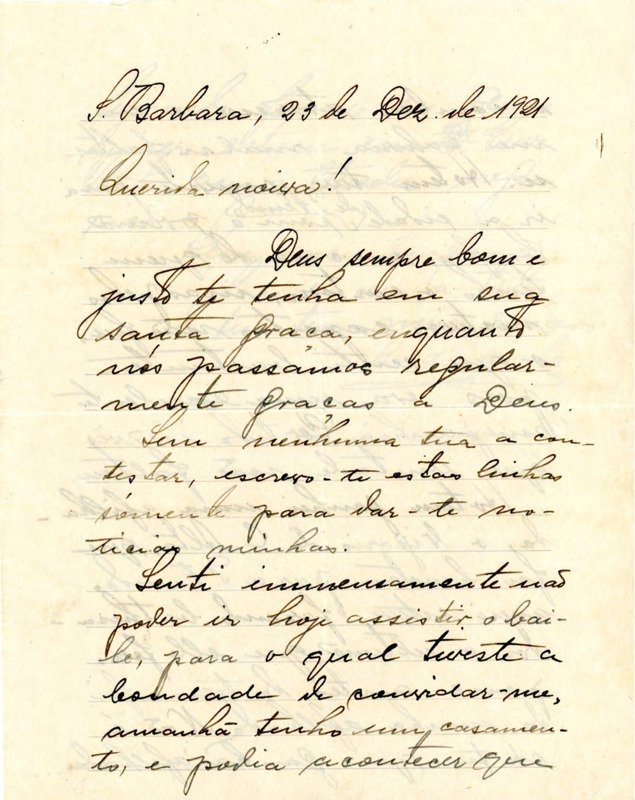 S. Barbara, 23 de Dez. de 1921
Querida noiva!
Deus sempre bom e
justo te tenha em sua
santa graca, enquanto
nós passâmos regular-
mente graças a Deus.
Sem nenhuma tua a con-
testar, escrevo-te estas linhas
sómente para dar-te no-
ticias minhas.
Senti immensamente não
poder ir hoje assistir o bai-
le, para o qual tiveste a
bondade de convidar-me,
amanhã tenho um casamen-
to, e podia acontecer que